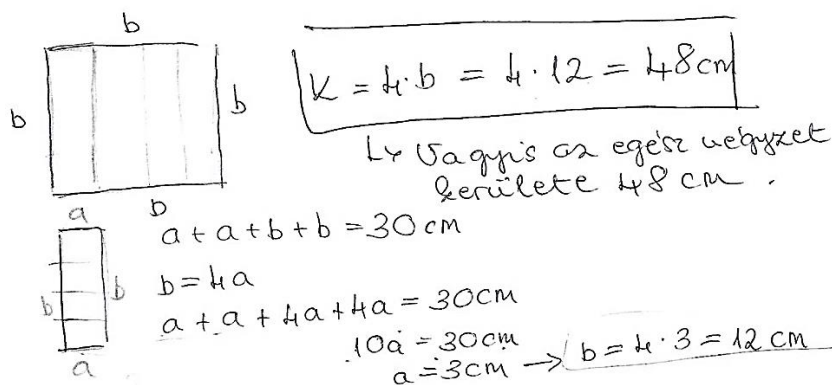 b
b
b
K = 4·b = 4·12 = 48 cm
↳ Vagyis az egész négyzet
kerülete 48 cm.
a
b
a + a + b + b = 30 cm
b
b
b = 4a
a + a + 4a + 4a = 30 cm
10a = 30 cm
a
a = 3 cm → b = 4·3 = 12 cm